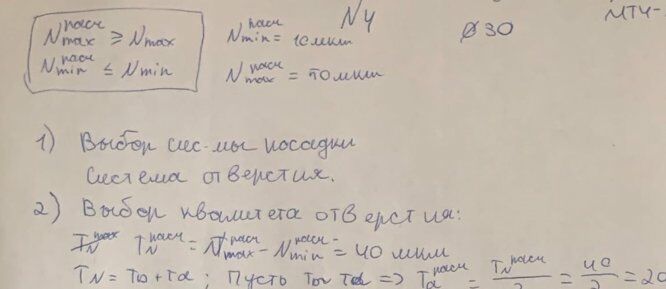 N4
МТ4-
N max расч ≥ N max
N min расч ≤ N min
N min расч = 10 мкм
N max расч = 50 мкм
⌀30
1) Выбор сис-мы посадки
Система отверстия.
2) Выбор квалитета отверстия:
T N расч = N max расч - N min расч = 40 мкм
T N = T D + T d ; Пусть T D = T d => T d расч = T N расч / 2 = 40 / 2 = 20